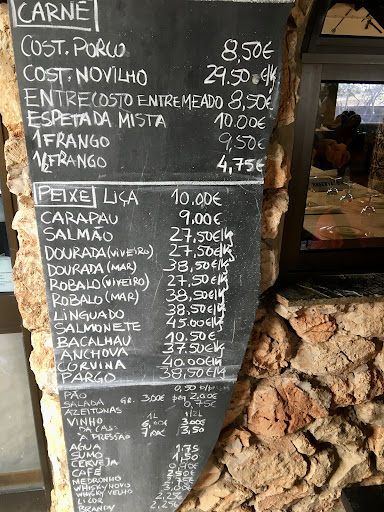 CARNE
COST. PORCO 8,50€
COST. NOVILHO 29.50€/K
ENTRECOSTO ENTREMEADO 8,50€
ESPETADA MISTA 10.00€
1 FRANGO 9,50€
1/2 FRANGO 4,75€
PEIXE LIÇA 10.00€
CARAPAU 9.00€
SALMÃO 27,50€/K
DOURADA (VIVEIRO) 27,50€/K
DOURADA (MAR) 38,50€/K
ROBALO (VIVEIRO) 27,50€/K
ROBALO (MAR) 38,50€/K
LINGUADO 38,50€/K
SALMONETE 45.00€/K
BACALHAU 10.50€
ANCHOVA 37.50€/K
CORVINA 40.00€/K
PARGO 38,50€/K
PÃO 0,50
SALADA GR. 3,00€ peq 2,00€
AZEITONAS 0,75€
VINHO 1L 1/2L
DA CASA 3,00€
A PRESSÃO 3,50
AGUA 1,75
SUMO 1,50
CERVEJA
CAFÉ
MEDRONHO
WHISKY NOVO
WHISKY VELHO
LICOR 2,25
BRANDY 2,25€